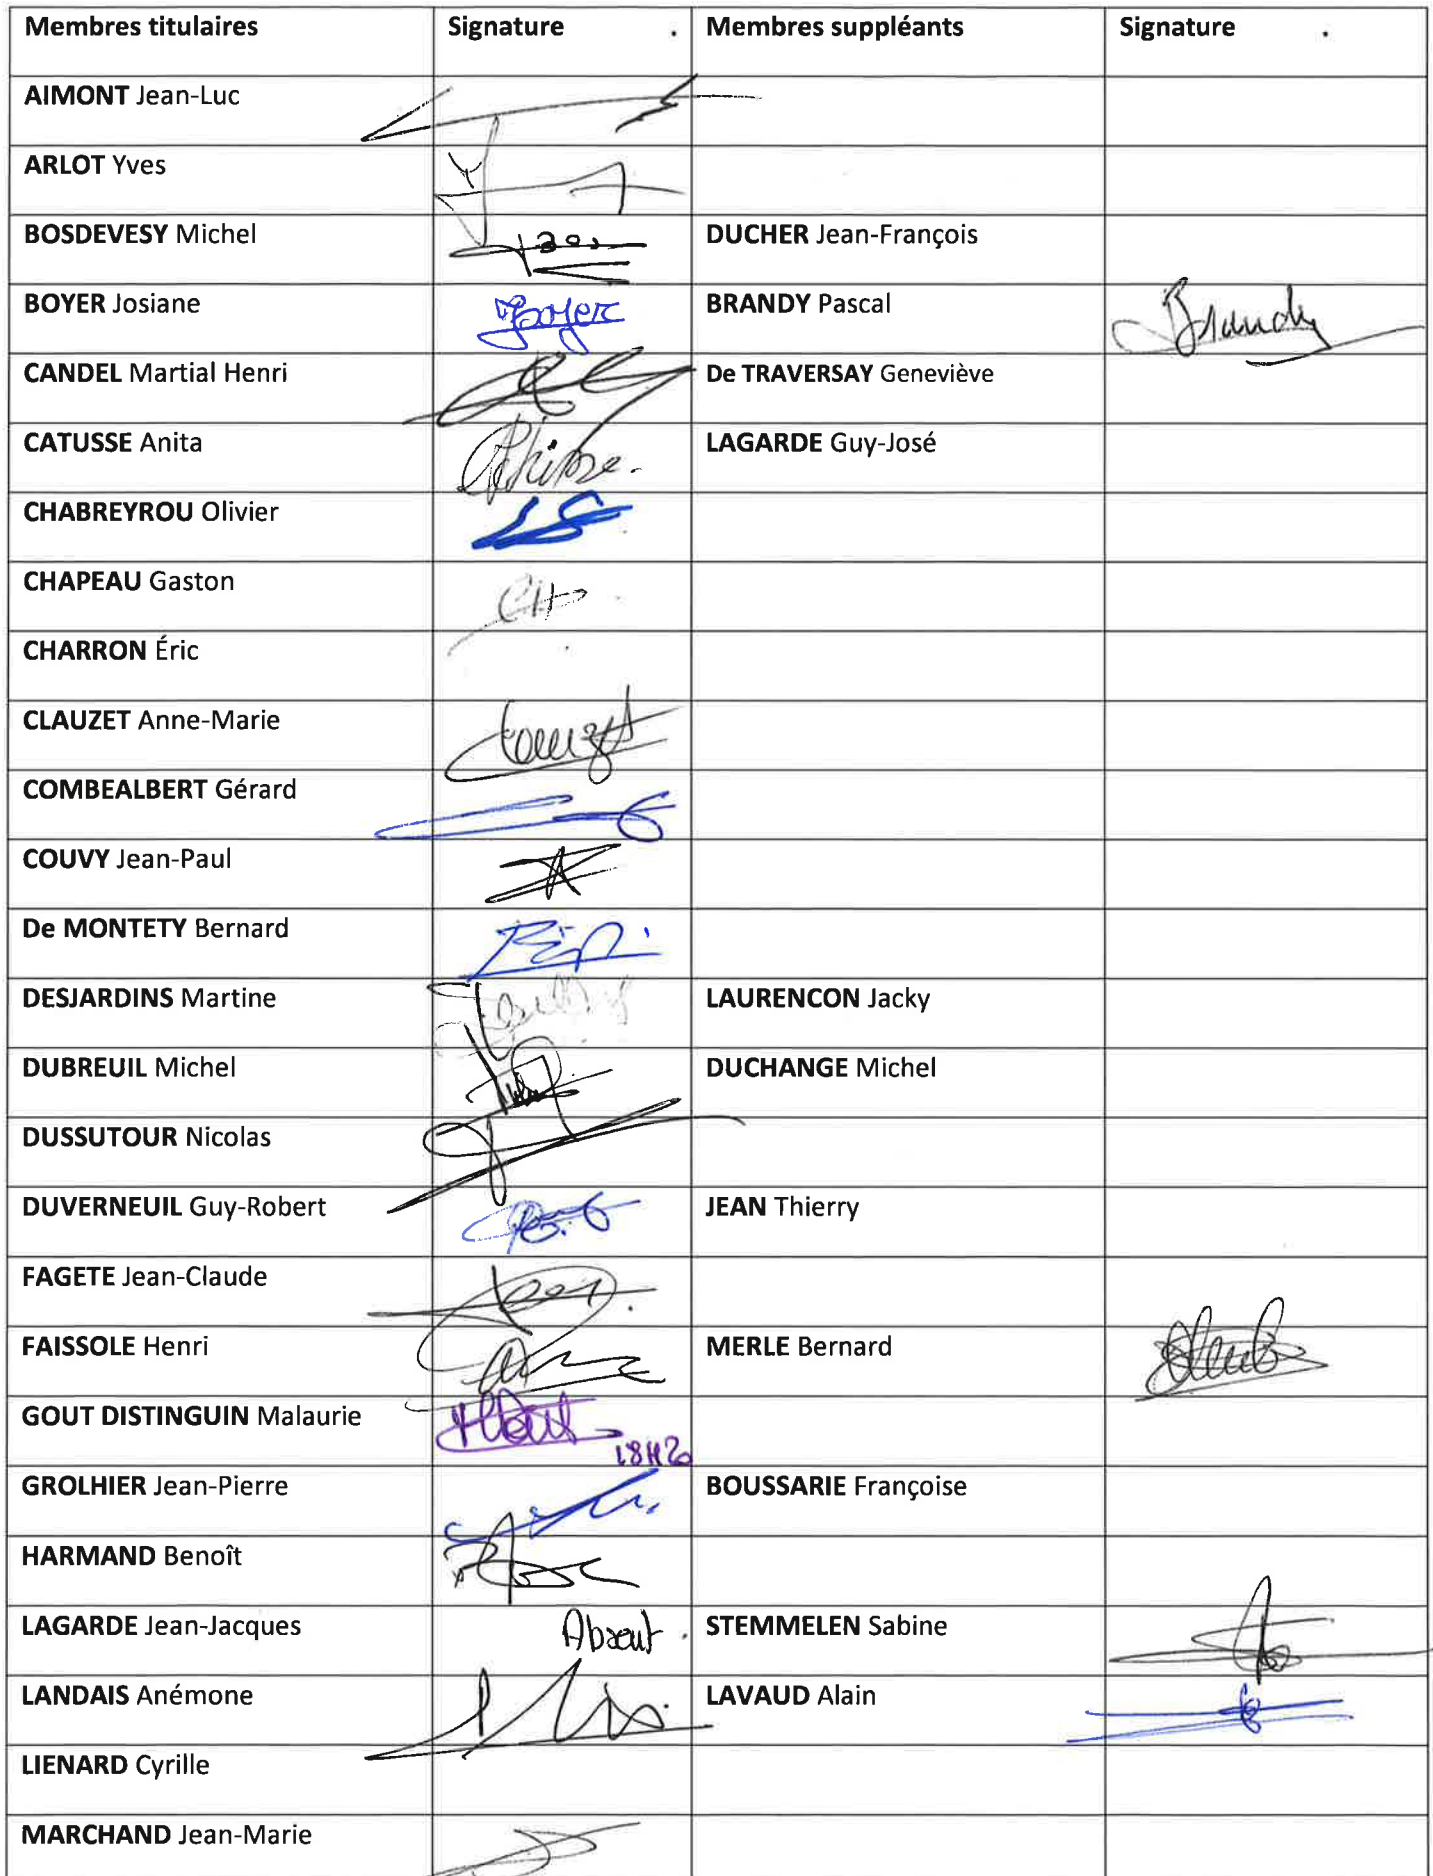 Membres titulaires Signature Membres suppléants Signature
AIMONT Jean-Luc
ARLOT Yves
BOSDEVESY Michel DUCHER Jean-François
BOYER Josiane Boyer BRANDY Pascal Brandy
CANDEL Martial Henri De TRAVERSAY Geneviève
CATUSSE Anita LAGARDE Guy-José
CHABREYROU Olivier
CHAPEAU Gaston CH
CHARRON Éric
CLAUZET Anne-Marie Clauzet
COMBEALBERT Gérard
COUVY Jean-Paul
De MONTETY Bernard
DESJARDINS Martine LAURENCON Jacky
DUBREUIL Michel DUCHANGE Michel
DUSSUTOUR Nicolas
DUVERNEUIL Guy-Robert JEAN Thierry
FAGETE Jean-Claude
FAISSOLE Henri MERLE Bernard
GOUT DISTINGUIN Malaurie 18H20
GROLHIER Jean-Pierre BOUSSARIE Françoise
HARMAND Benoît
LAGARDE Jean-Jacques Absent STEMMELEN Sabine
LANDAIS Anémone LAVAUD Alain
LIENARD Cyrille
MARCHAND Jean-Marie